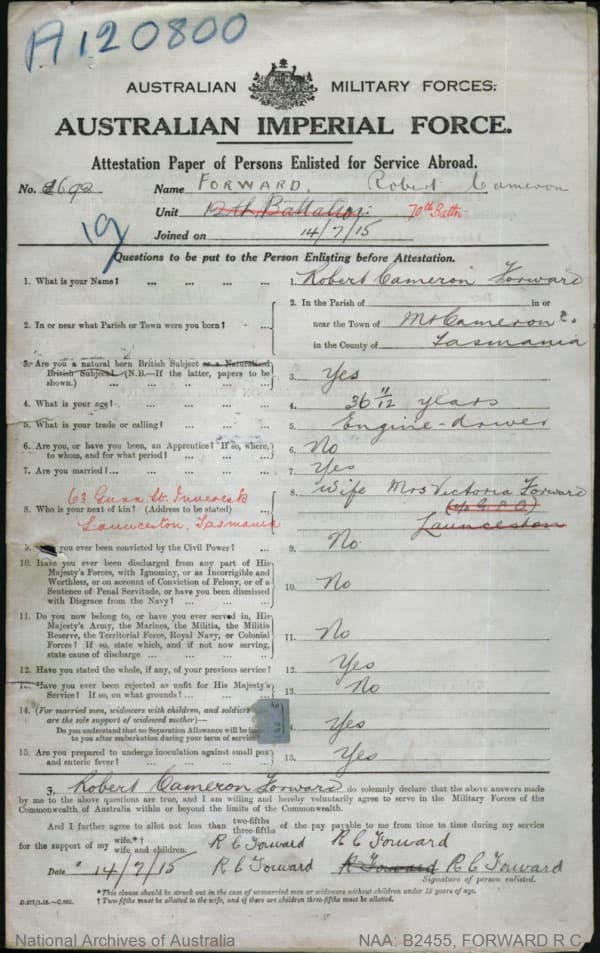 A120800
AUSTRALIAN MILITARY FORCES.
AUSTRALIAN IMPERIAL FORCE.
Attestation Paper of Persons Enlisted for Service Abroad.
No. 2692 Name FORWARD. Robert Cameron
Unit 12th Battalion. 70th Battn
Joined on 14/7/15
19
Questions to be put to the Person Enlisting before Attestation.
1. What is your Name? ... ... ... ... 1. Robert Cameron Forward
2. In or near what Parish or Town were you born? ... 2. In the Parish of in or
near the Town of Mt Cameron
in the County of Tasmania
3. Are you a natural born British Subject or a Naturalized
British Subject? (N.B.—If the latter, papers to be
shown.) ... ... ... ... 3. Yes
4. What is your age? ... ... ... ... 4. 36 11/12 years
5. What is your trade or calling? ... ... ... 5. Engine-driver
6. Are you, or have you been, an Apprentice? If so, where,
to whom, and for what period? ... ... ... 6. No
7. Are you married? ... ... ... ... 7. Yes
63 Gunn St. Inveresk
8. Who is your next of kin? (Address to be stated) ... 8. Wife Mrs Victoria Forward
Launceston, Tasmania
c/o G.P.O
Launceston
9. you ever been convicted by the Civil Power? ... 9. No
10. Have you ever been discharged from any part of His
Majesty's Forces, with Ignominy, or as Incorrigible and
Worthless, or on account of Conviction of Felony, or of a
Sentence of Penal Servitude, or have you been dismissed
with Disgrace from the Navy? ... ... ... 10. No
11. Do you now belong to, or have you ever served in, His
Majesty's Army, the Marines, the Militia, the Militia
Reserve, the Territorial Force, Royal Navy, or Colonial
Forces? If so, state which, and if not now serving,
state cause of discharge ... ... ... 11. No
12. Have you stated the whole, if any, of your previous service? 12. Yes
Have you ever been rejected as unfit for His Majesty's
Service? If so, on what grounds? ... ... ... 13. No
14. (For married men, widowers with children, and soldiers
are the sole support of widowed mother)—
Do you understand that no Separation Allowance will be
to you after embarkation during your term of service 14. Yes
15. Are you prepared to undergo inoculation against small pox
and enteric fever? ... ... ... ... 15. Yes
I, Robert Cameron Forward do solemnly declare that the above answers made
by me to the above questions are true, and I am willing and hereby voluntarily agree to serve in the Military Forces of the
Commonwealth of Australia within or beyond the limits of the Commonwealth.
And I further agree to allot not less than two-fifths three-fifths of the pay payable to me from time to time during my service
for the support of my wife.*† wife and children. R C Forward R C Forward
Date 14/7/15 R C Forward R Forward R C Forward
Signature of person enlisted.
*This clause should be struck out in the case of unmarried men or widowers without children under 18 years of age.
† Two-fifths must be allotted to the wife, and if there are children three-fifths must be allotted.
National Archives of Australia NAA: B2455, FORWARD R C